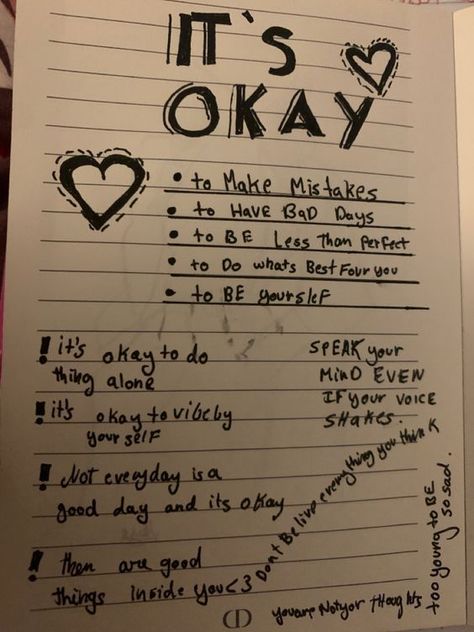 IT'S
OKAY
• to Make Mistakes
• to HAVE BaD Days
• to BE Less Than perfect
• to Do whats Best Four you
• to BE yourslef
! it's okay to do
thing alone
! it's okay to vibe by
your self
! Not everyday is a
good day and its okay
! then are good
things inside you<3
SPEAK your
MinD EVEN
IF your VOICE
SHAKES.
Don't Be live everything you thin K
too young to BE
so sad.
youare Not yor THoughts